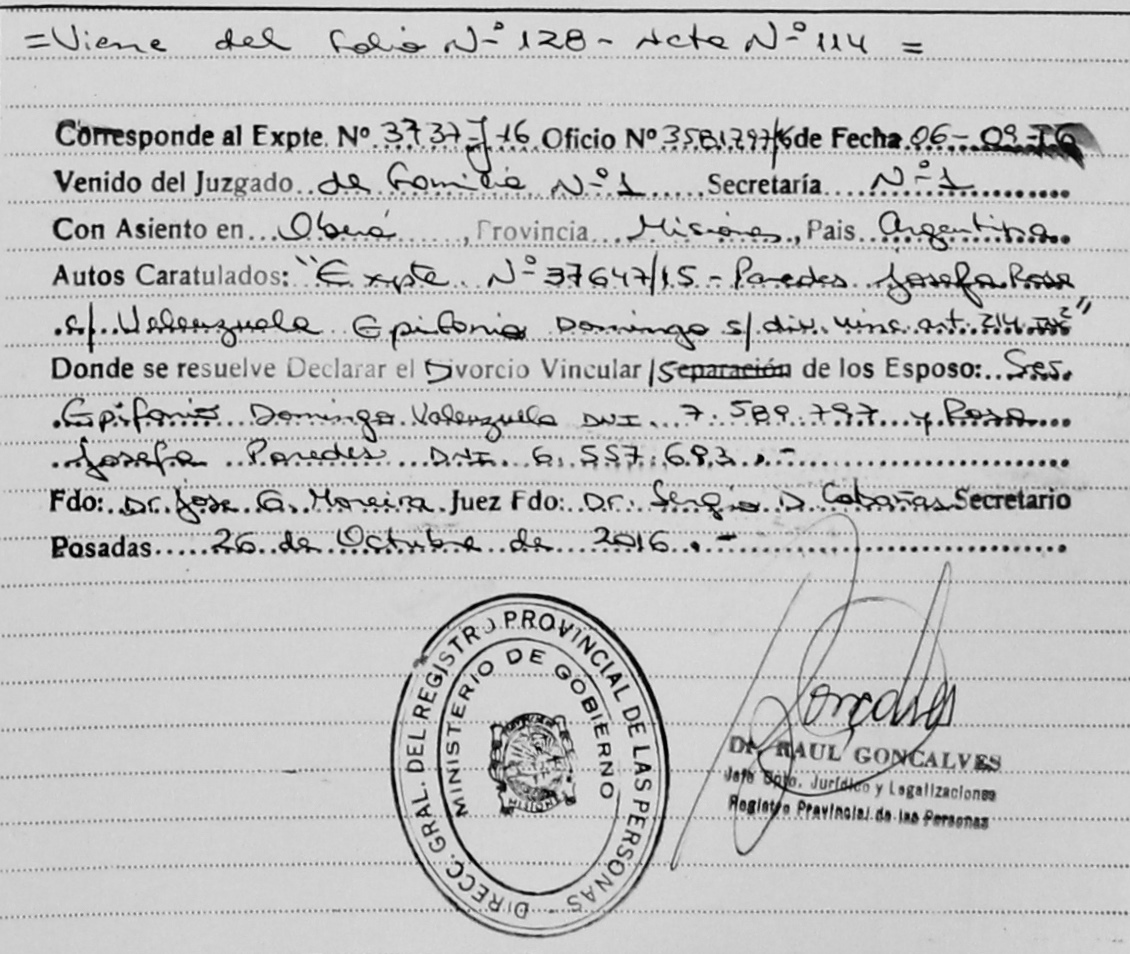 =Viene del folio Nº 128 - Acta Nº 114 =
Corresponde al Expte. Nº 3737-J-16 Oficio Nº 3581797/16 de Fecha 06-09-16
Venido del Juzgado de Familia Nº 1 Secretaría Nº 1
Con Asiento en Oberá, Provincia Misiones, Pais Argentina
Autos Caratulados: "Expte Nº 37647/15 - Paredes Josefa Rosa
c/ Valenzuela Epifanio Domingo s/ div. vinc. art. 214 2"
Donde se resuelve Declarar el Divorcio Vincular / Separación de los Esposo: Sres.
Epifanio Domingo Valenzuela DNI 7.589.797 y Rosa
Josefa Paredes DNI 6.557.683.-
Fdo: Dr. Jose G. Moreira Juez Fdo: Dr. Sergio D. Cabañas Secretario
Posadas 26 de Octubre de 2016.-
DIRECC. GRAL. DEL REGISTRO PROVINCIAL DE LAS PERSONAS -
MINISTERIO DE GOBIERNO
MISIONES
Goncalves
Dr. RAUL GONCALVES
Jefe Dpto. Jurídico y Legalizaciones
Registro Provincial de las Personas